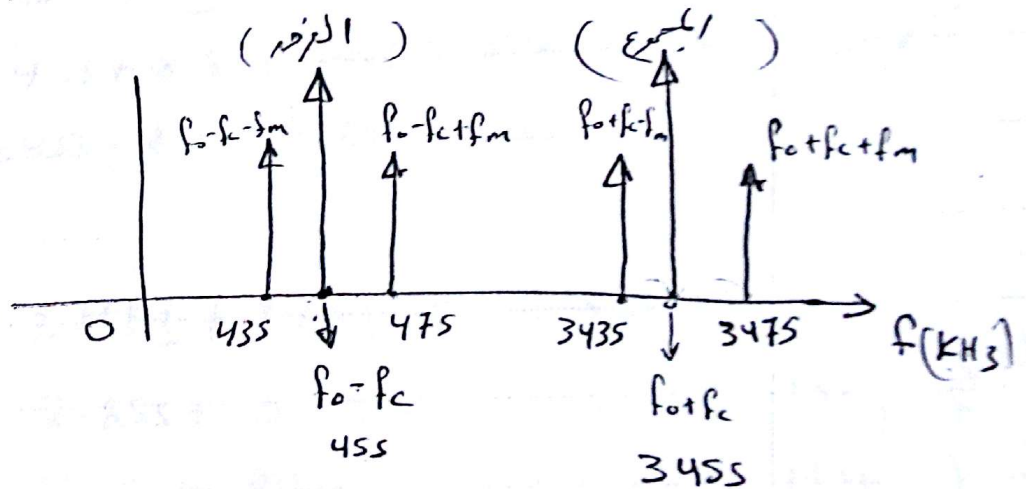 ( الفرق ) ( المجموع )
fo-fc-fm fo-fc+fm fo+fc-fm fo+fc+fm
0 435 475 3435 3475 f(KHz)
fo-fc fo+fc
455 3455